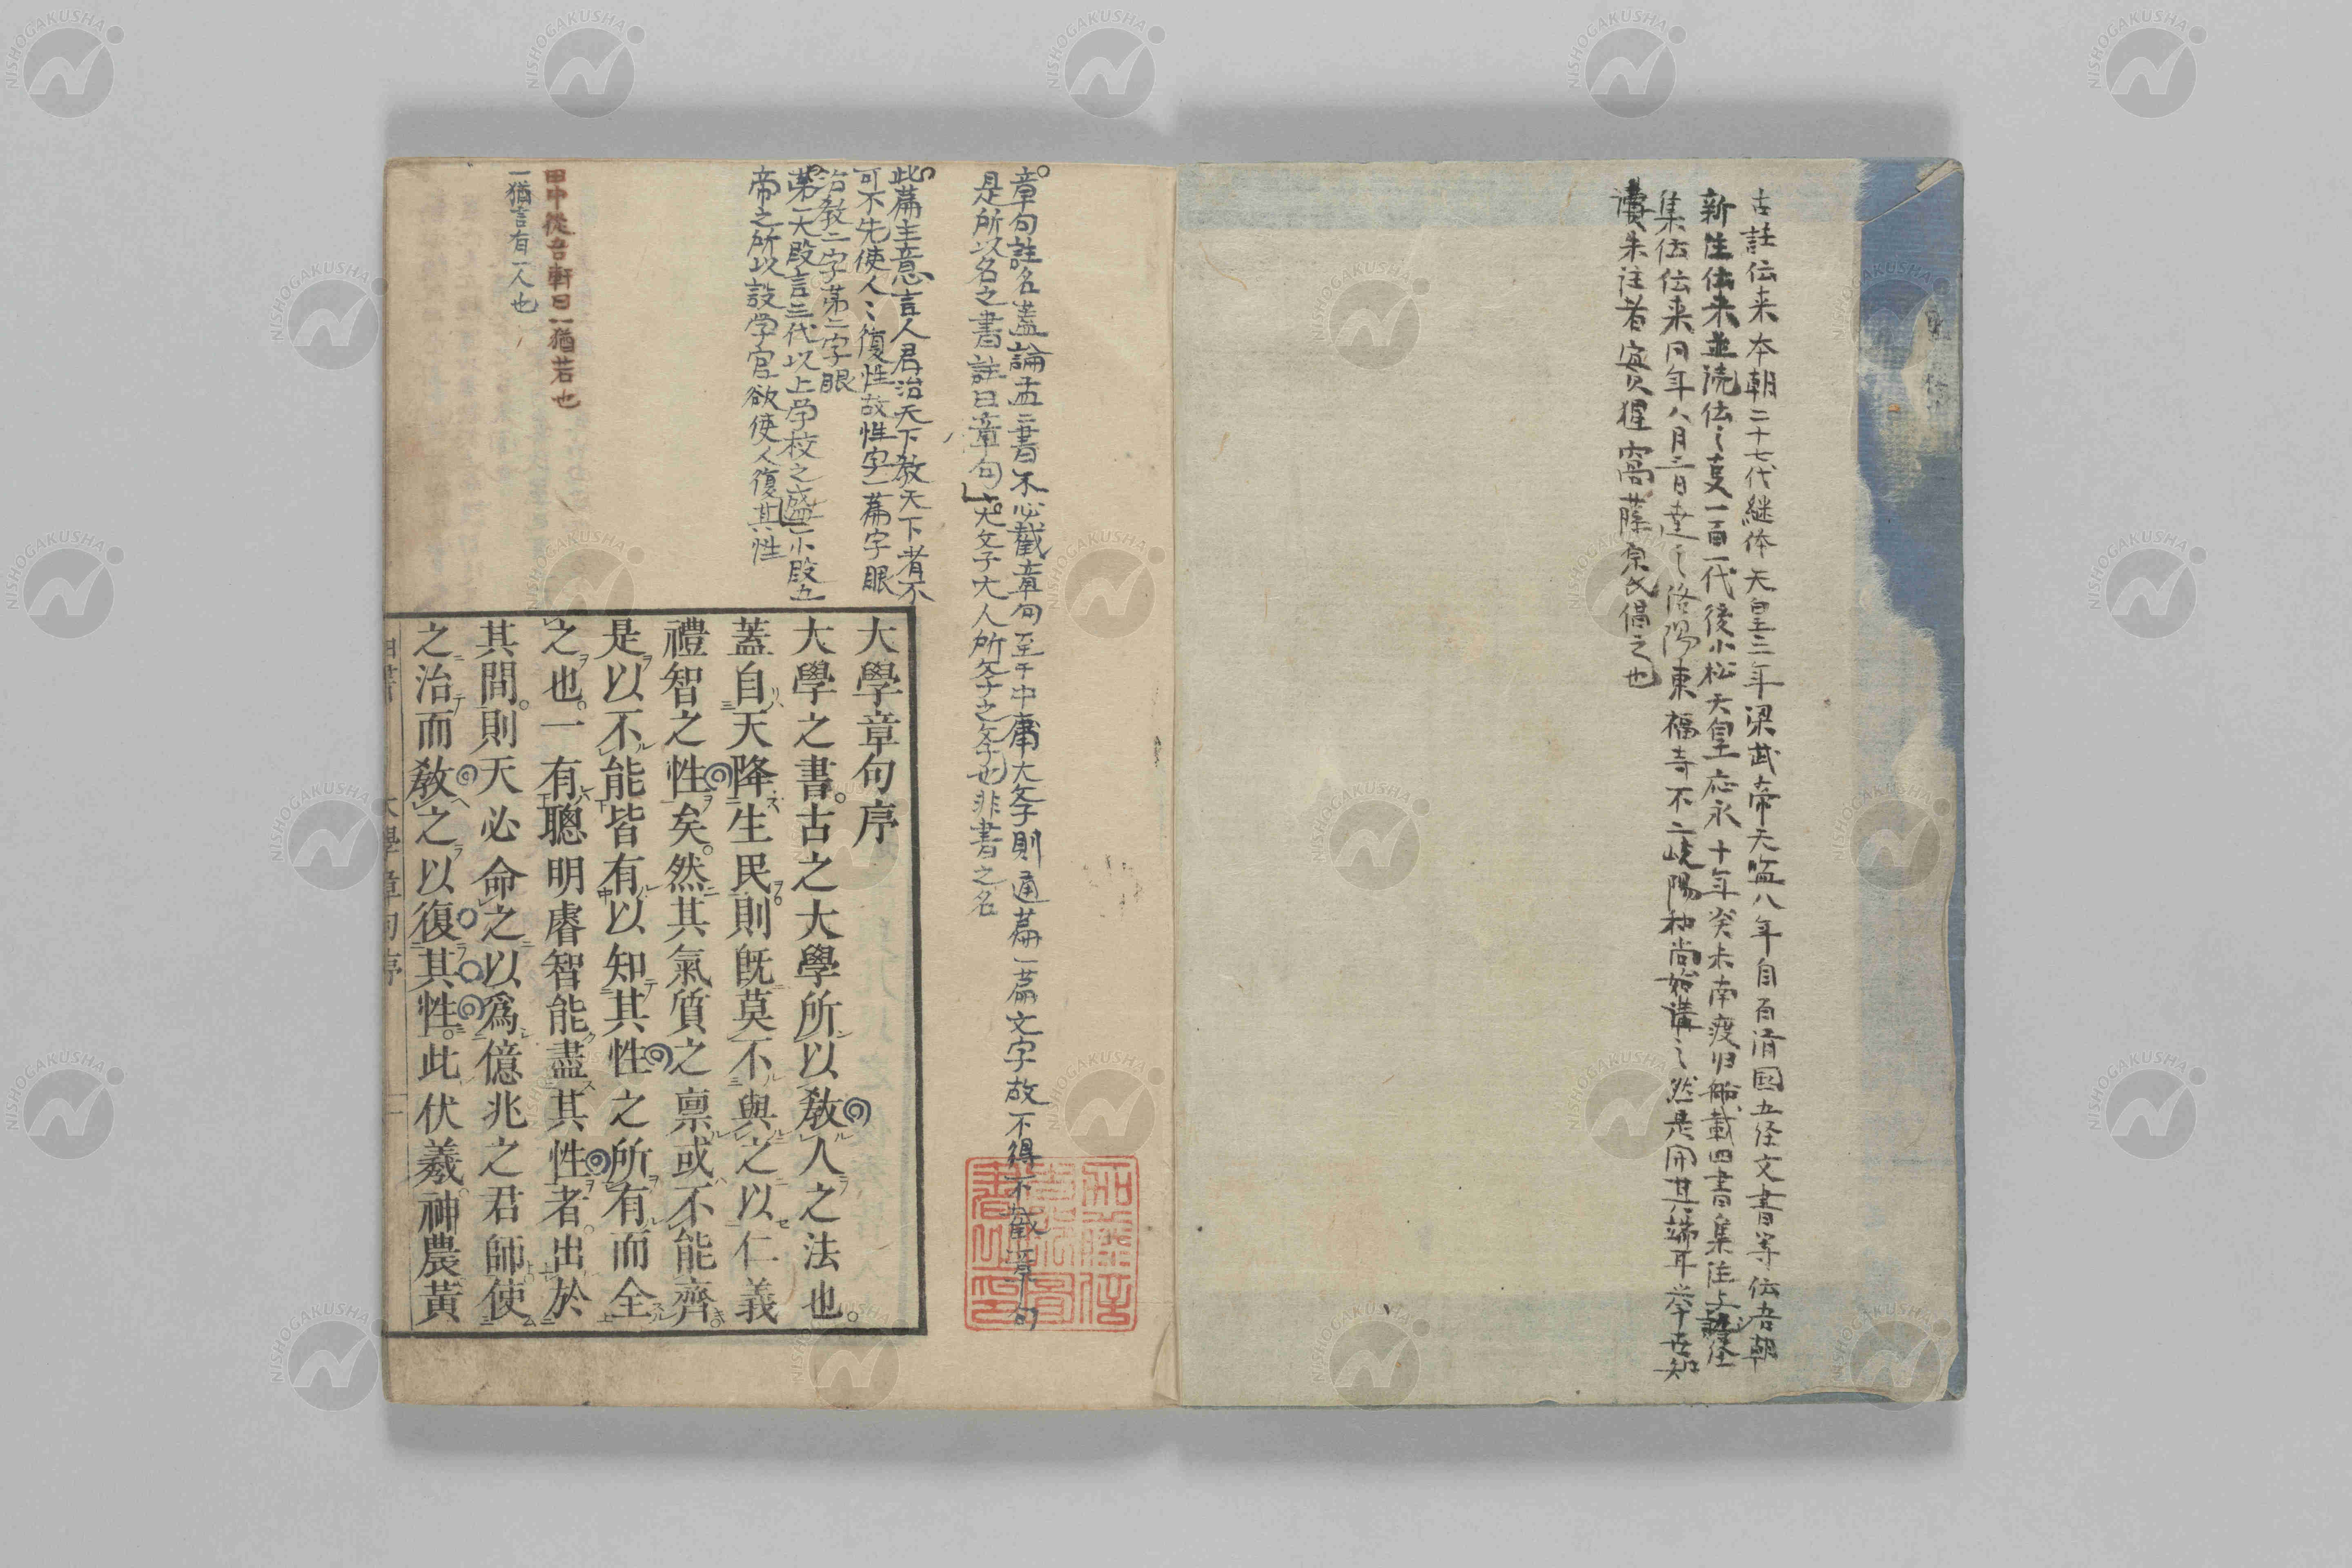 古註伝来本朝二十七代継体天皇三年梁武帝天監八年自百済国五経文書等伝吾朝
新注伝来並流伝之支一百一代後小松天皇応永十年癸未南渡归船載四書集注上
集伝伝来同年八月三日達之洛陽東福寺不二岐陽和尚始講之然是開其端耳举世知
読朱注者實猩窩藤原氏倡之也
章句註名蓋論孟二書不必截章句至于中庸大学則通篇一篇文字故不得不截章句
是所以名之書註曰章句大学大人所学之学也非書之名
此篇主意言人君治天下教天下者不
可不先使人〻復性故性字一篇字眼
治教二字第二字眼
第一大段言三代以上学校之盛一小段五
帝之所以設学官欲使人復其性
田中從吾軒曰一猶若也
一猶言有一人也
大學章句序
大學之書古之大學所以敎人之法也
蓋自天降生民則既莫不與之以仁義
禮智之性矣然其氣質之禀或不能齊
是以不能皆有以知其性之所有而全
之也一有聰明睿智能盡其性者出於
其間則天必命之以爲億兆之君師使
之治而敎之以復其性此伏羲神農黃
大學章句序
NISHOGAKUSHA